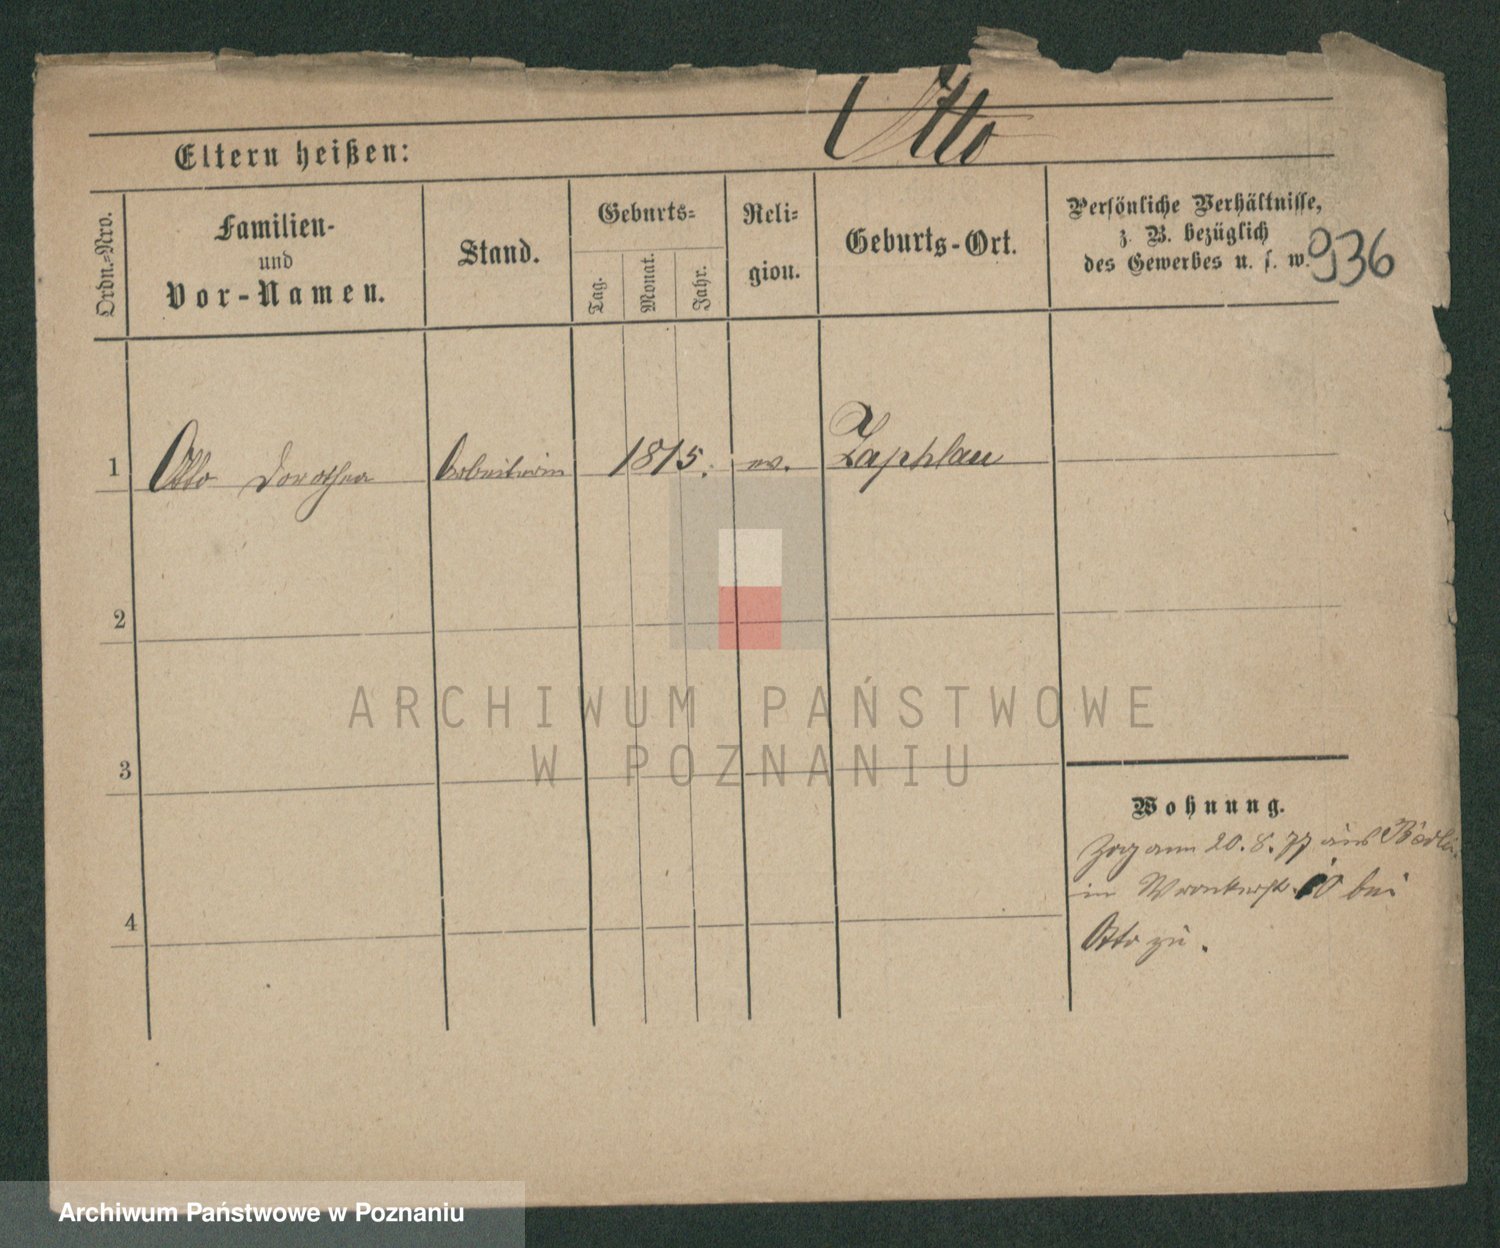 Otto
Eltern heißen:
Ordn.-Nro.
Familien-
und
Vor-Namen.
Stand.
Geburts-
Tag.
Monat.
Jahr.
Reli-
gion.
Geburts-Ort.
Persönliche Verhältnisse,
z. B. bezüglich
des Gewerbes u. s. w.
936
1 Otto Dorothea Arbeiterin 1815. ev. Zaphlau
2
3
4
Wohnung.
Zog am 20.8.77 aus
in Wronkerstr. 10 bei
Otto zu.
ARCHIWUM PAŃSTWOWE
W POZNANIU
Archiwum Państwowe w Poznaniu